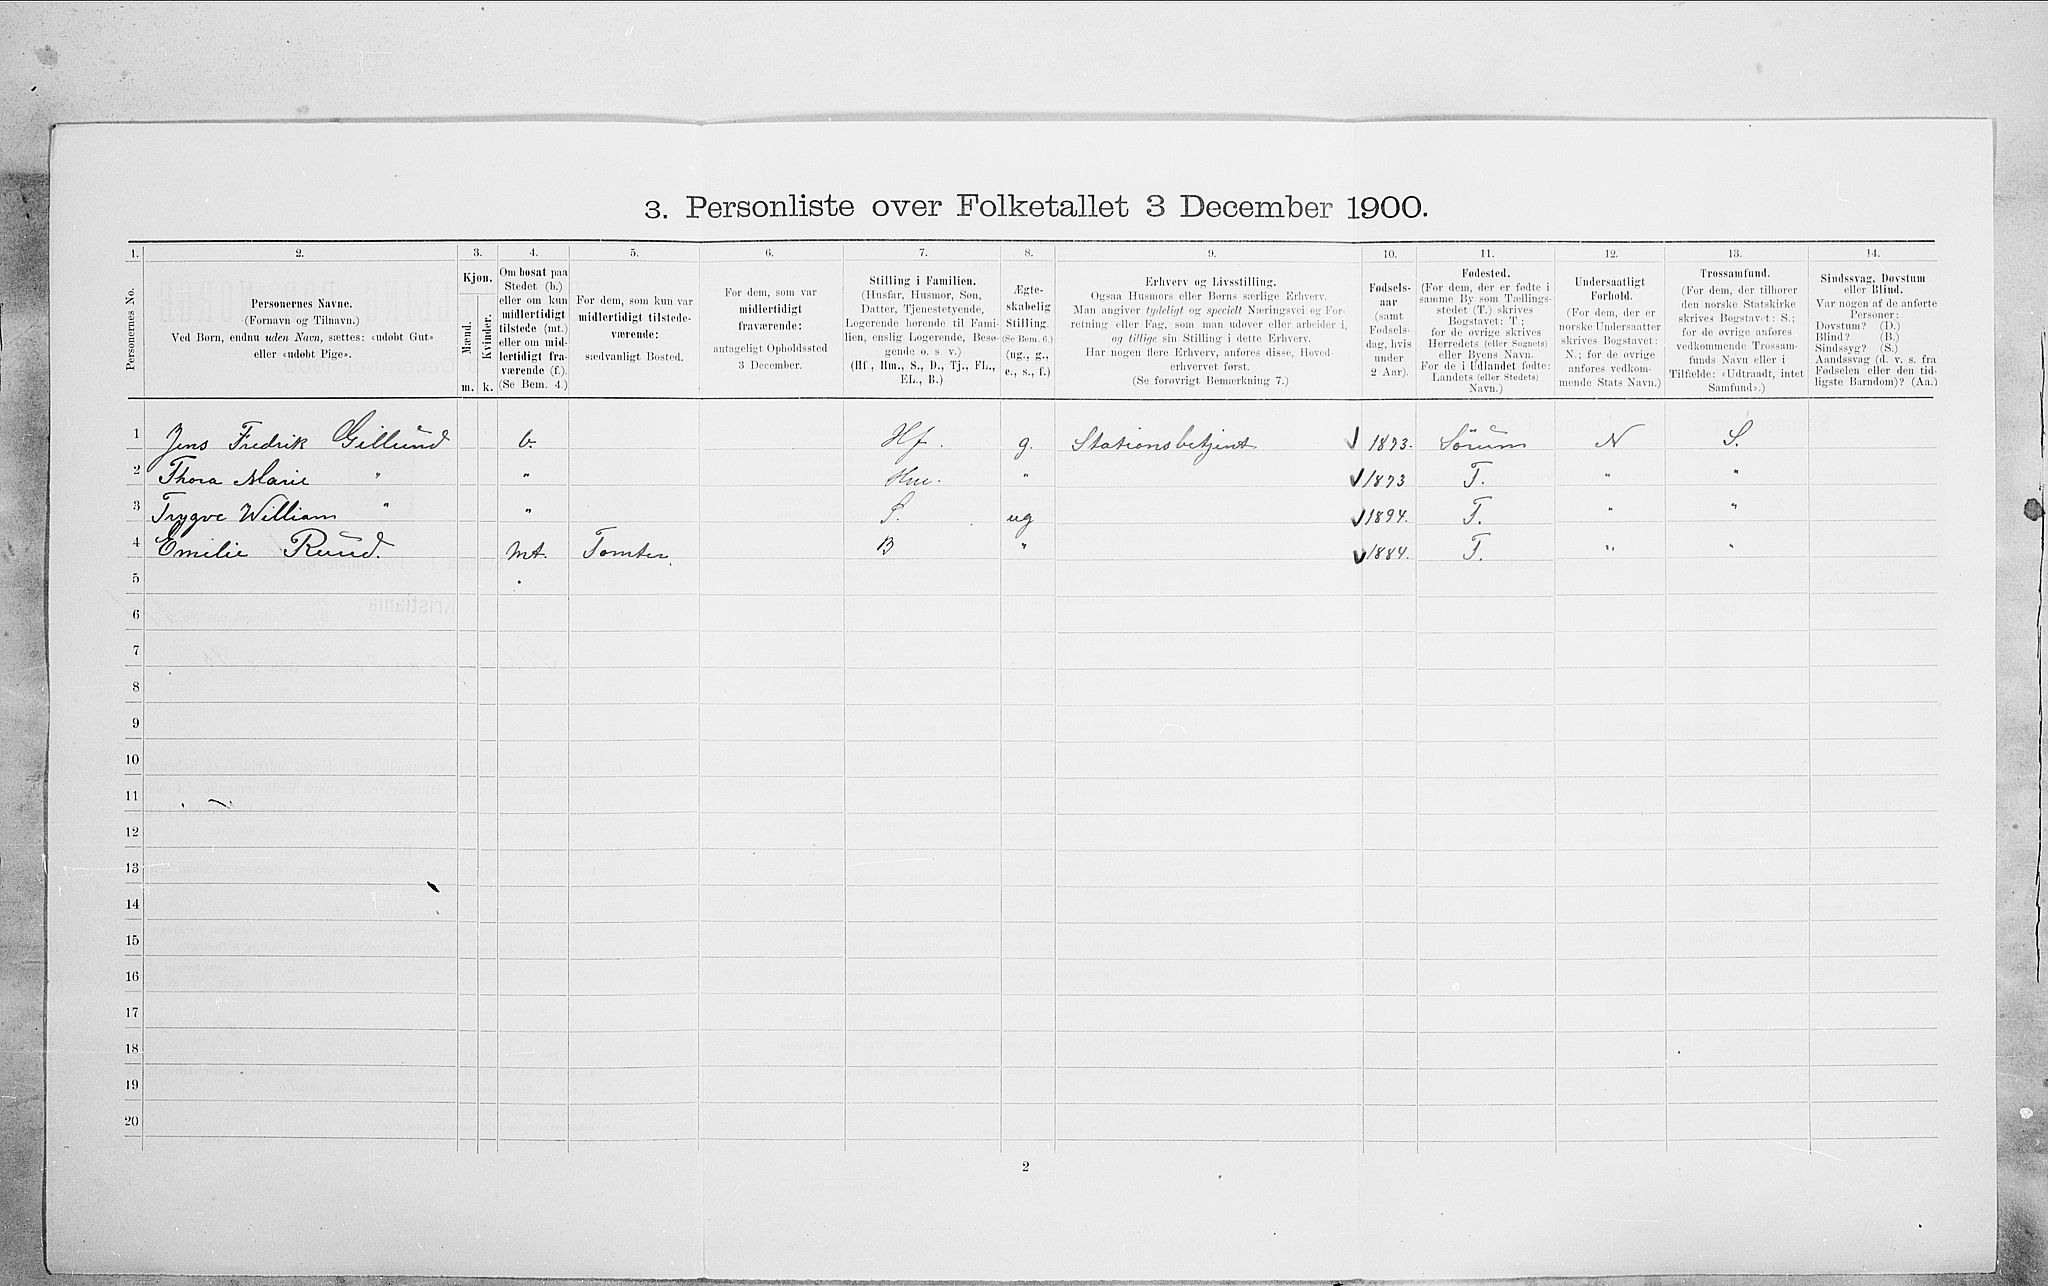 3. Personliste over Folketallet 3 December 1900.
1. 2. 3. 4. 5. 6. 7. 8. 9. 10. 11. 12. 13. 14.
Personernes No.
Personernes Navne.
(Fornavn og Tilnavn.)
Ved Børn, endnu uden Navn, sættes: «udøbt Gut»
eller «udøbt Pige».
Kjøn.
Mænd.
Kvinder.
m. k.
Om bosat paa
Stedet (b.)
eller om kun
midlertidigt
tilstede (mt.)
eller om mid-
lertidigt fra-
værende (f.).
(Se Bem. 4.)
For dem, som kun var
midlertidigt tilstede-
værende:
sædvanligt Bosted.
For dem, som var
midlertidigt
fraværende:
antageligt Opholdssted
3 December.
Stilling i Familien.
(Husfar, Husmor, Søn,
Datter, Tjenestetyende,
Logerende hørende til Fami-
lien, enslig Logerende, Besø-
gende o. s. v.)
(Hf., Hm., S., D., Tj., FL.,
EL., B.)
Ægte-
skabelig
Stilling.
(Se Bem. 6.)
(ug., g.,
e., s., f.)
Erhverv og Livsstilling.
Ogsaa Husmors eller Børns særlige Erhverv.
Man angiver tydeligt og specielt Næringsvei og For-
retning eller Fag, som man udøver eller arbeider i,
og tillige sin Stilling i dette Erhverv.
Har nogen flere Erhverv, anføres disse, Hoved-
erhvervet først.
(Se forøvrigt Bemærkning 7.)
Fødsels-
aar
(samt
Fødsels-
dag, hvis
under
2 Aar).
Fødested.
(For dem, der er fødte i
samme By som Tællings-
stedet (T.) skrives
Bogstavet: T.;
for de øvrige skrives
Herredets (eller Sognets)
eller Byens Navn.
For de i Udlandet fødte:
Landets (eller Stedets)
Navn.)
Undersaatligt
Forhold.
(For dem, der er
norske Undersaatter
skrives Bogstavet:
N.; for de øvrige
anføres vedkom-
mende Stats Navn.)
Trossamfund.
(For dem, der tilhører
den norske Statskirke
skrives Bogstavet: S.;
for de øvrige anføres
vedkommende Trossam-
funds Navn eller i
Tilfælde: «Udtraadt, intet
Samfund».)
Sindssvag, Døvstum
eller Blind.
Var nogen af de anførte
Personer:
Døvstum? (D.)
Blind? (B.)
Sindssyg? (S.)
Aandssvag (d. v. s. fra
Fødselen eller den tid-
ligste Barndom)? (Aa.)
1 Jens Fredrik Gillund b. Hf. g. Stationsbetjent 1873. Sørum N S.
2 Thora Marie " " Hm. " 1873 T. " "
3 Trygve William " " S. ug 1894. T. " "
4 Emilie Ruud. mt. Tomter. B " 1884. T. " "
5
6
7
8
9
10
11
12
13
14
15
16
17
18
19
20
2